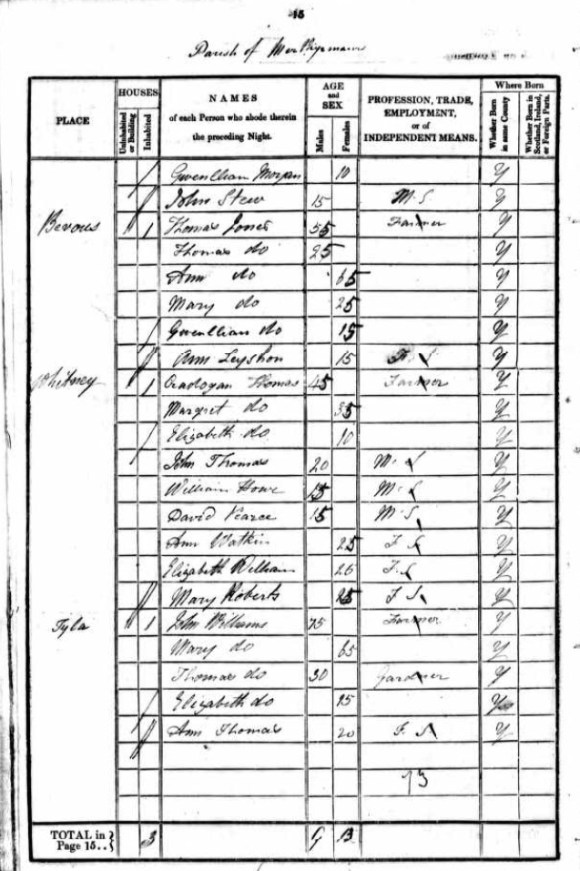 15
Parish of
PLACE
HOUSES
Uninhabited or Building
Inhabited
NAMES
of each Person who abode therein
the preceding Night.
AGE
and
SEX
Males
Females
PROFESSION, TRADE,
EMPLOYMENT,
or of
INDEPENDENT MEANS.
Where Born
Whether Born in same County
Whether Born in Scotland, Ireland, or Foreign Parts.
Gwenllian Morgan 10 Y
John Stew 15 M. S Y
1 Thomas Jones 55 Farmer Y
Thomas do 25 Y
Ann do 65 Y
Mary do 25 Y
Gwenllian do 15 Y
Ann Leyshon 15 F. S Y
Whitney 1 Cradogan Thomas 45 Farmer Y
Margret do 35 Y
Elizabeth do 10 Y
John Thomas 20 M. S Y
William Howe 15 M. S Y
David Pearce 15 M. S Y
Ann Watkin 25 F. S Y
Elizabeth William F. S Y
Mary Roberts 25 F. S Y
Tyla 1 John Williams 75 Farmer Y
Mary do 65 Y
Thomas do 30 Gardner Y
Elizabeth do Y
Ann Thomas 20 F. S Y
TOTAL in
Page 15.. 3 9 13